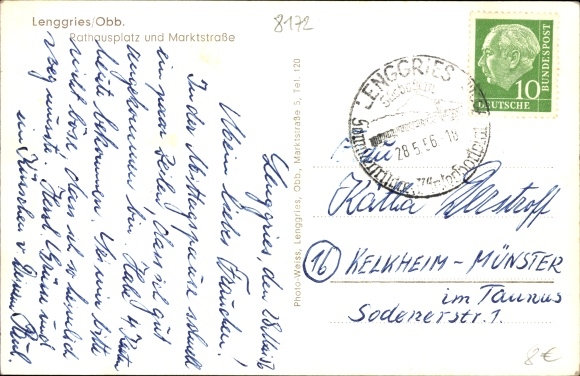 Lenggries/Obb.
Rathausplatz und Marktstraße
8172
Lenggries, den 28. Mai 56
Mein liebes Frauchen!
In der Mittagspause schnell
ein paar Zeilen, dass ich gut
angekommen bin. Habe 4 Karten
Miete bekommen. Sei mir bitte
nicht böse, dass ich so heimlich
weg musste. Herzl. Grüsse und
ein Küsschen v. Deinem
Photo-Weiss, Lenggries, Obb., Marktstrasse 5, Tel. 120
LENGGRIES
28.5.56.18
DEUTSCHE
BUNDESPOST
10
Frau
Katia
16 KELKHEIM-MÜNSTER
im Taunus
Sodenerstr. 1.
8€